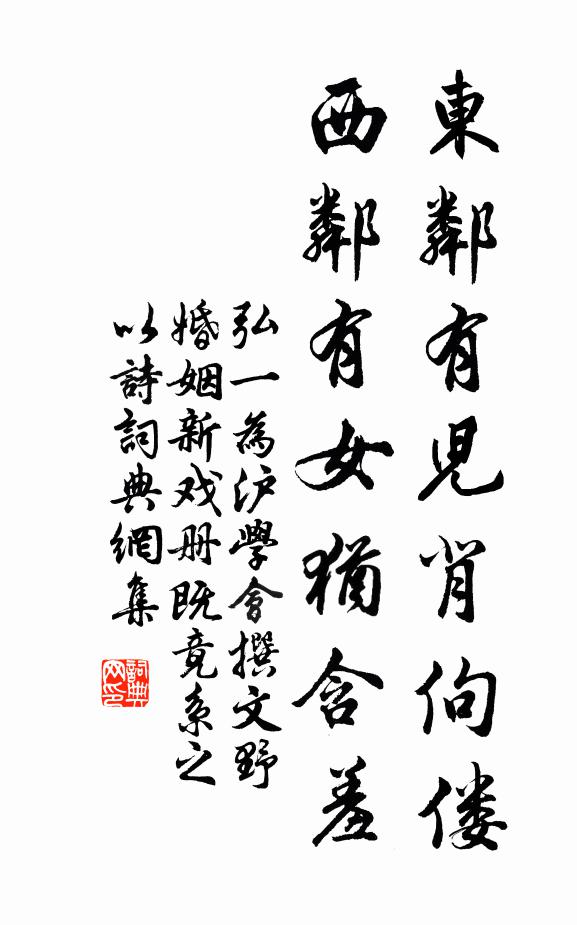 東鄰有児背佝僂
西鄰有女猶含羞
弘一為沪學會撰文野
婚姻新戏册既竟系之
以詩詞典網集
詞典網印